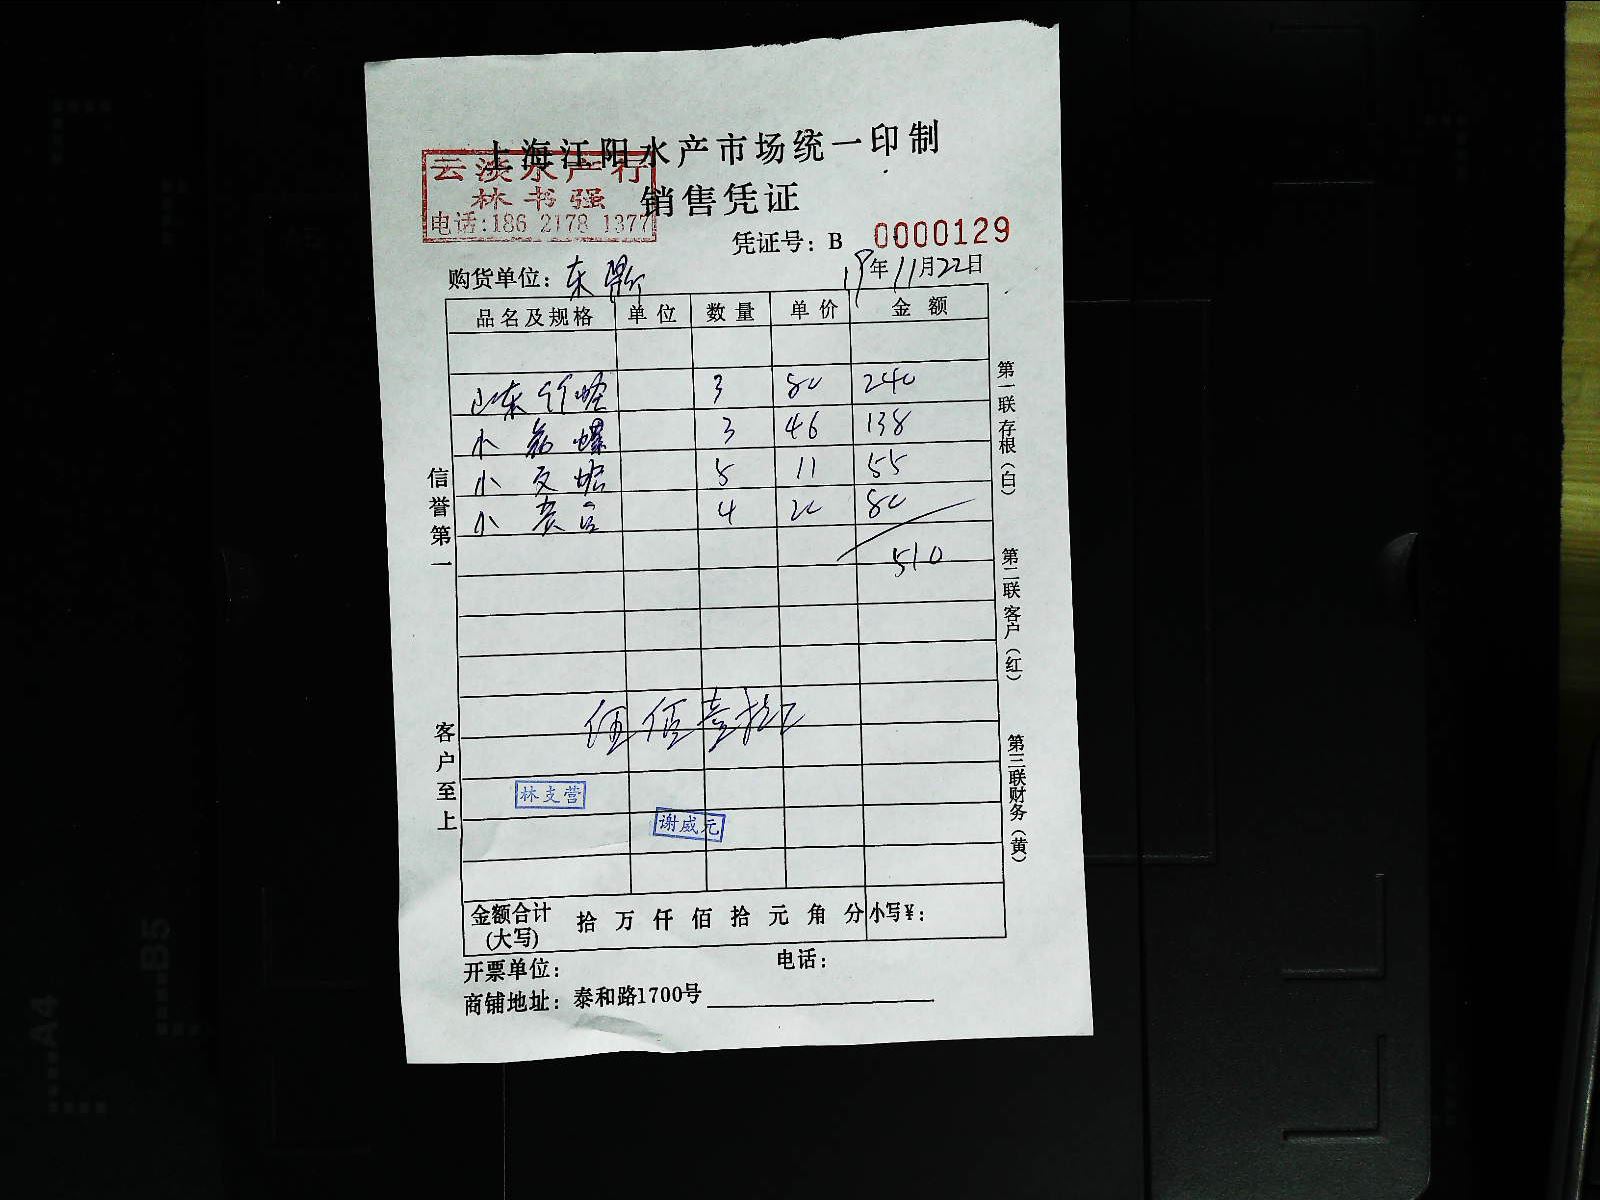 上海江阳水产市场统一印制
云淡水产行
林书强
电话:186 2178 1377
销售凭证
凭证号：B 0000129
购货单位：东
19年11月22日
品名及规格 单位 数量 单价 金额
山东 3 80 240
小 螺 3 46 138
小 5 11 55
小 4 20 80
510
伍佰壹拾元
林支营
谢威元
金额合计(大写) 拾 万 仟 佰 拾 元 角 分 小写¥：
开票单位：
电话：
商铺地址：泰和路1700号
信誉第一
客户至上
第一联存根(白)
第二联客户(红)
第三联财务(黄)
A4
B5